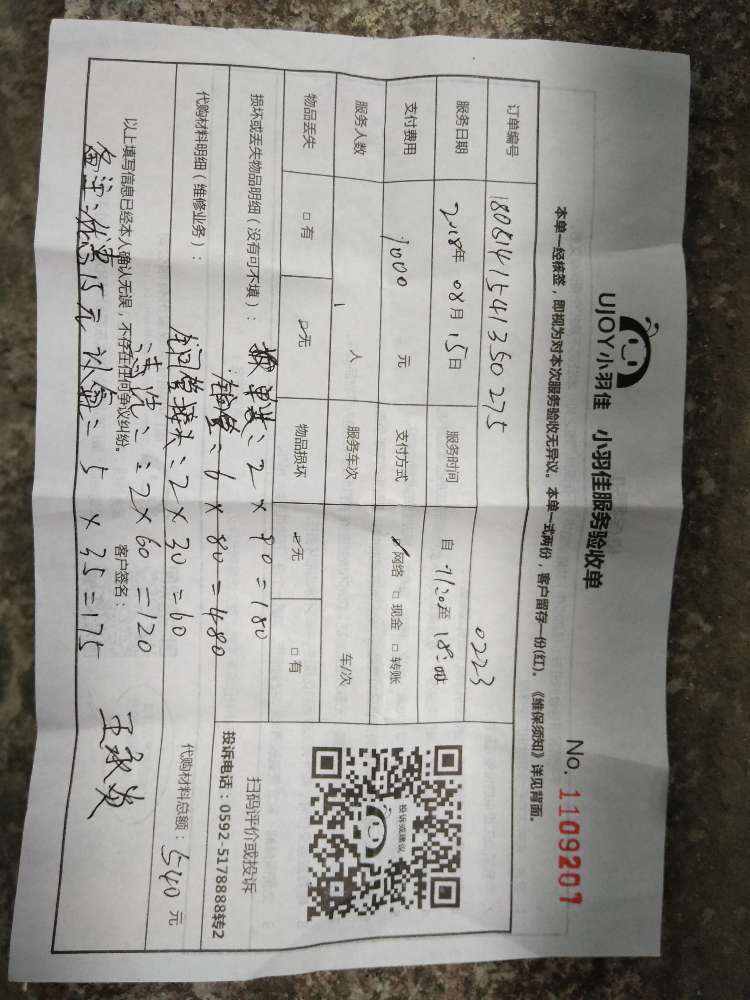 UJOY小羽佳 小羽佳服务验收单
No. 1109207
本单一经核签，即视为对本次服务验收无异议。本单一式两份，客户留存一份(红)。《维保须知》详见背面。
订单编号 1808141541350275 0223
服务日期 2018年 08月 15日 服务时间 自 至 18:00
支付费用 1000 元 支付方式 ✓网络 □现金 □转账
服务人数 1 人 服务车次 车/次
物品丢失 □有 ☑无 物品损坏 ☑无 □有
损坏或丢失物品明细（没有可不填）： 2×90=180
代购材料明细（维修业务）： 铜管：6×80=480
铜管接头：2×30=60
代购材料总额：540 元
清洗：2×60=120
以上填写信息已经本人确认无误，不存在任何争议纠纷。 客户签名：
备注：优惠15元 补氟：5×35=175
投诉或建议
扫码评价或投诉
投诉电话：0592-5178888转2